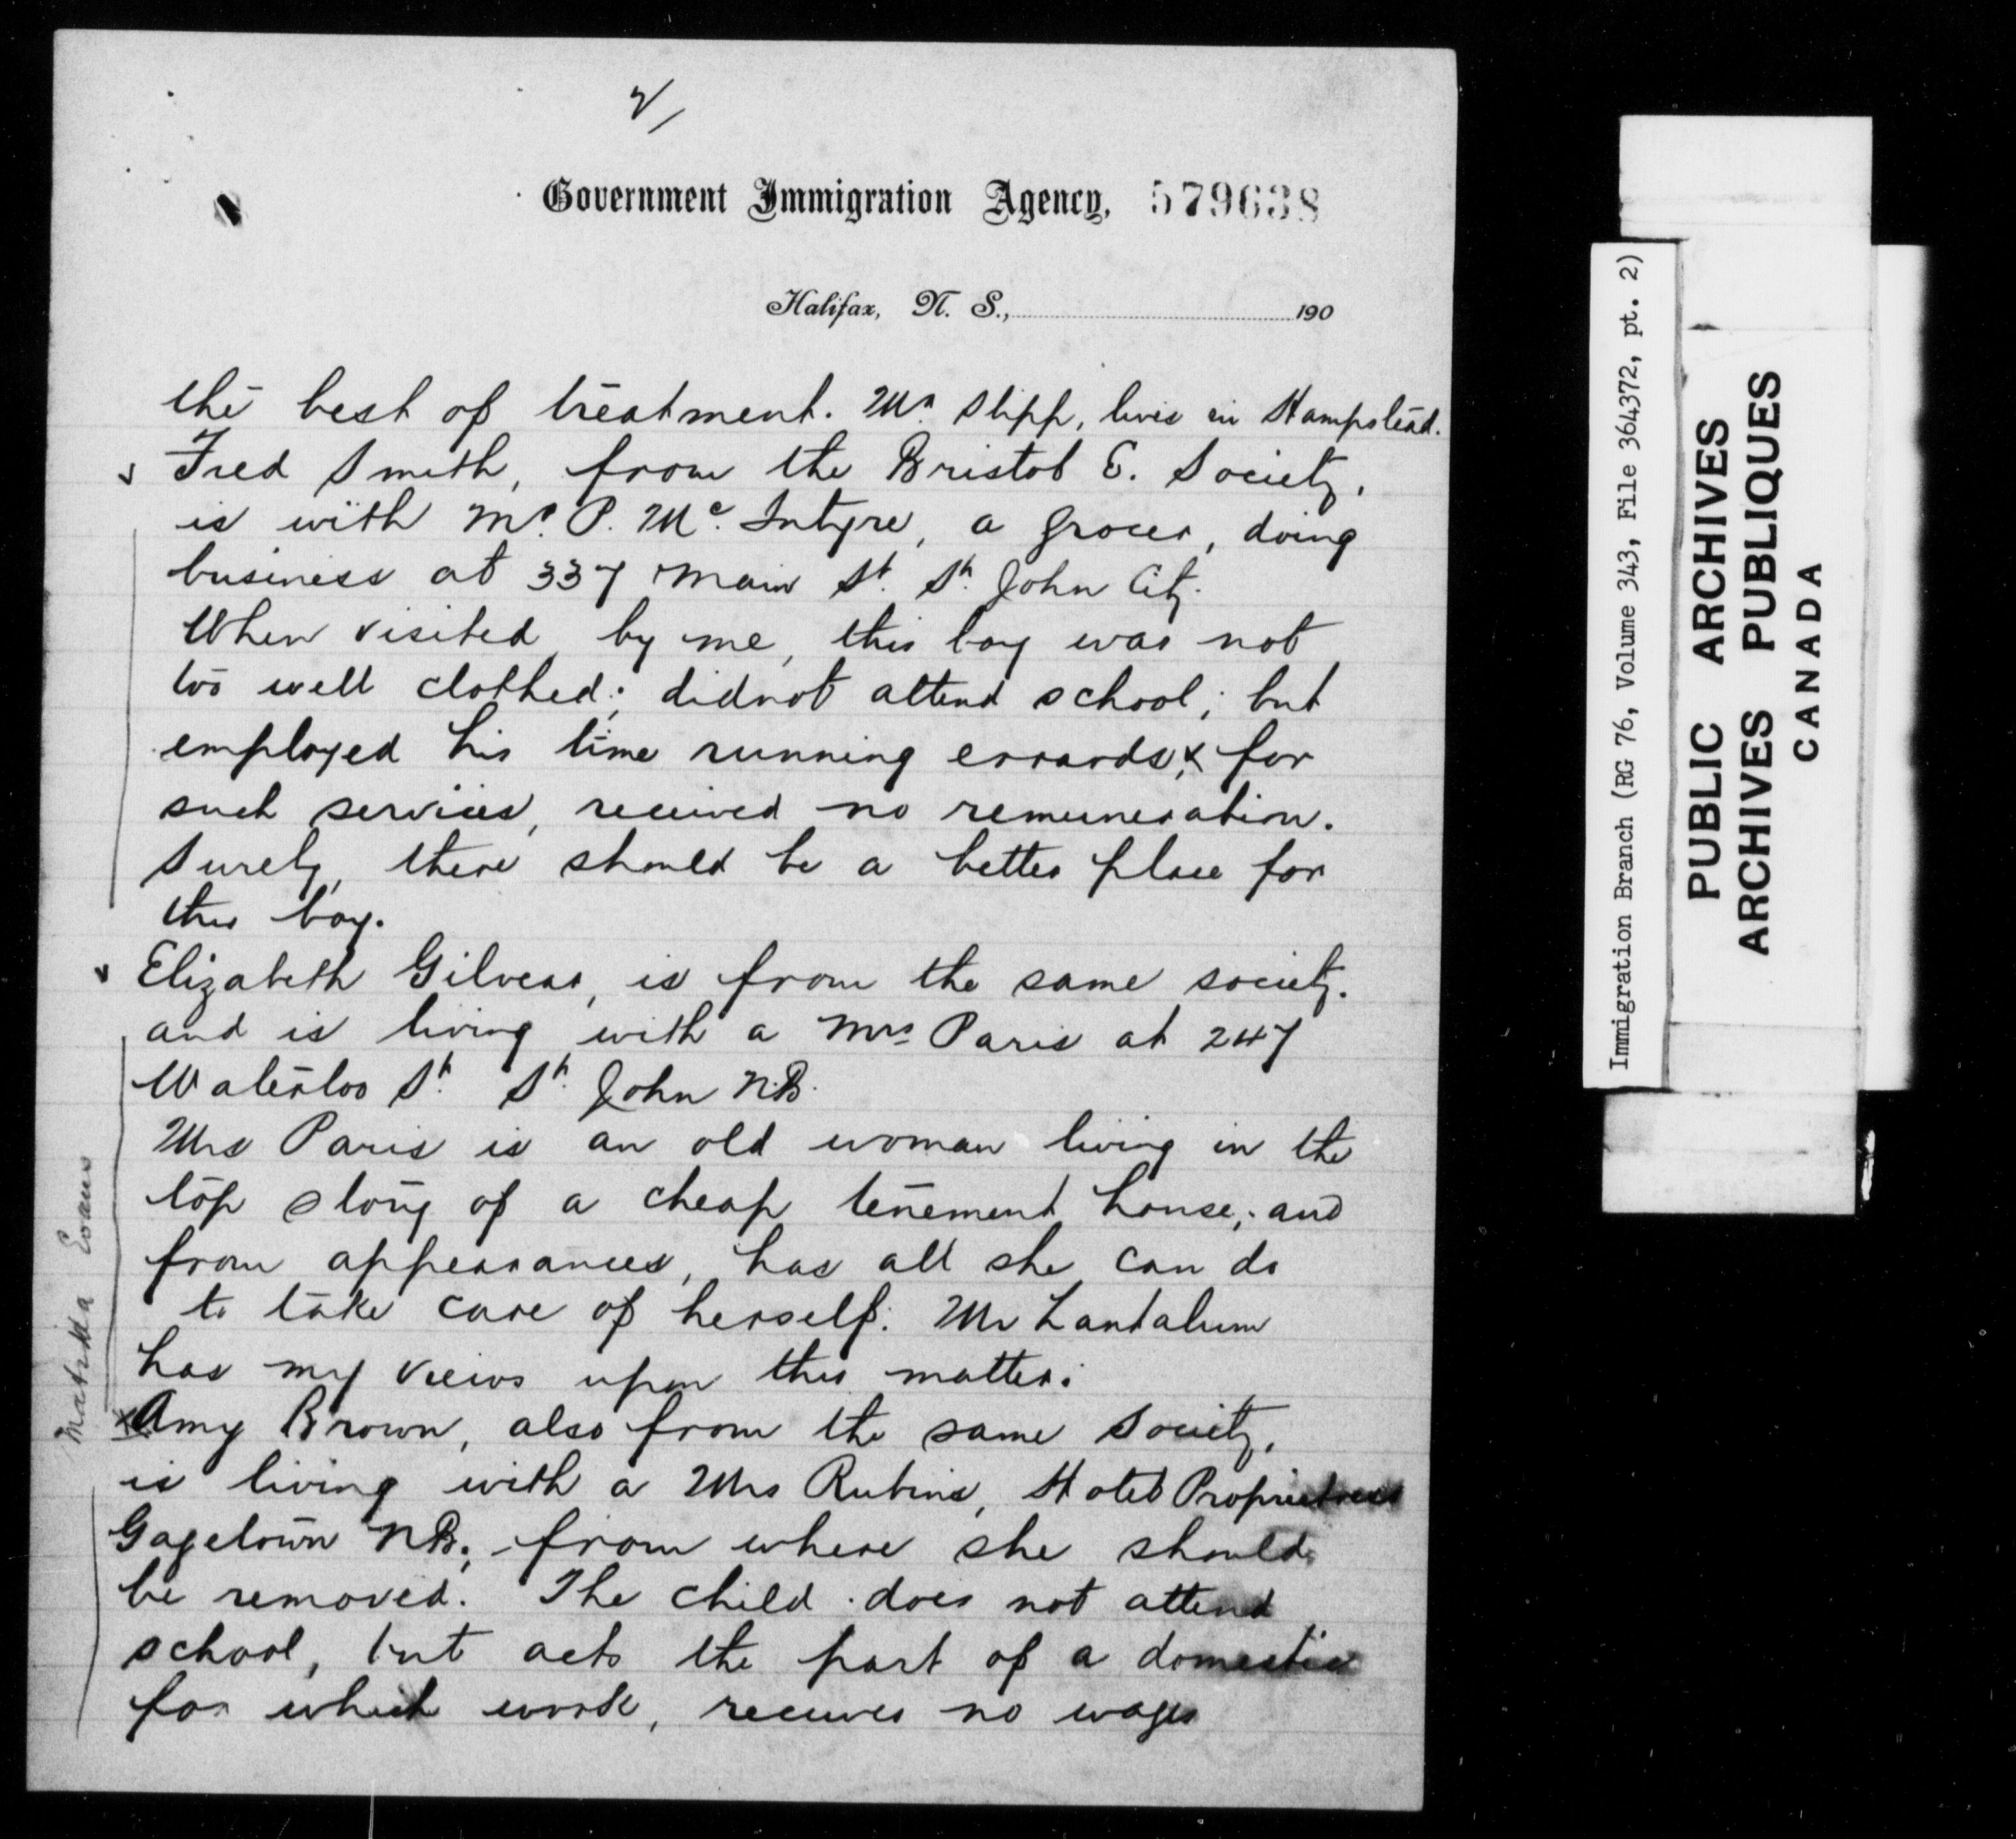 2/
Government Immigration Agency, 579638
Halifax, N. S., 190
the best of treatment. Mr. Slipp, lives in Hampstead.
Fred Smith, from the Bristol E. Society,
is with Mr. P. Mc. Intyre, a Grocer, doing
business at 337 Main St. St. John City.
When visited by me, this boy was not
too well clothed; didnot attend school; but
employed his time running errands, & for
such services, received no remuneration.
Surely, there should be a better place for
this boy.
Elizabeth Gilvear, is from the same society.
and is living with a Mrs Paris at 247
Waterloo St. St. John N.B.
Mrs Paris is an old woman living in the
top story of a cheap tenement house; and
from appearances, has all she can do
to take care of herself. Mr Lantalum
has my views upon this matter.
x Amy Brown, also from the same Society,
is living with a Mrs Rubins, Hotel Proprietress
Gagetown N.B.; from where she should
be removed. The child does not attend
school, but acts the part of a domestic
for which work, receives no wages
Evans
Immigration Branch (RG 76, Volume 343, File 364372, pt. 2)
PUBLIC ARCHIVES
ARCHIVES PUBLIQUES
CANADA